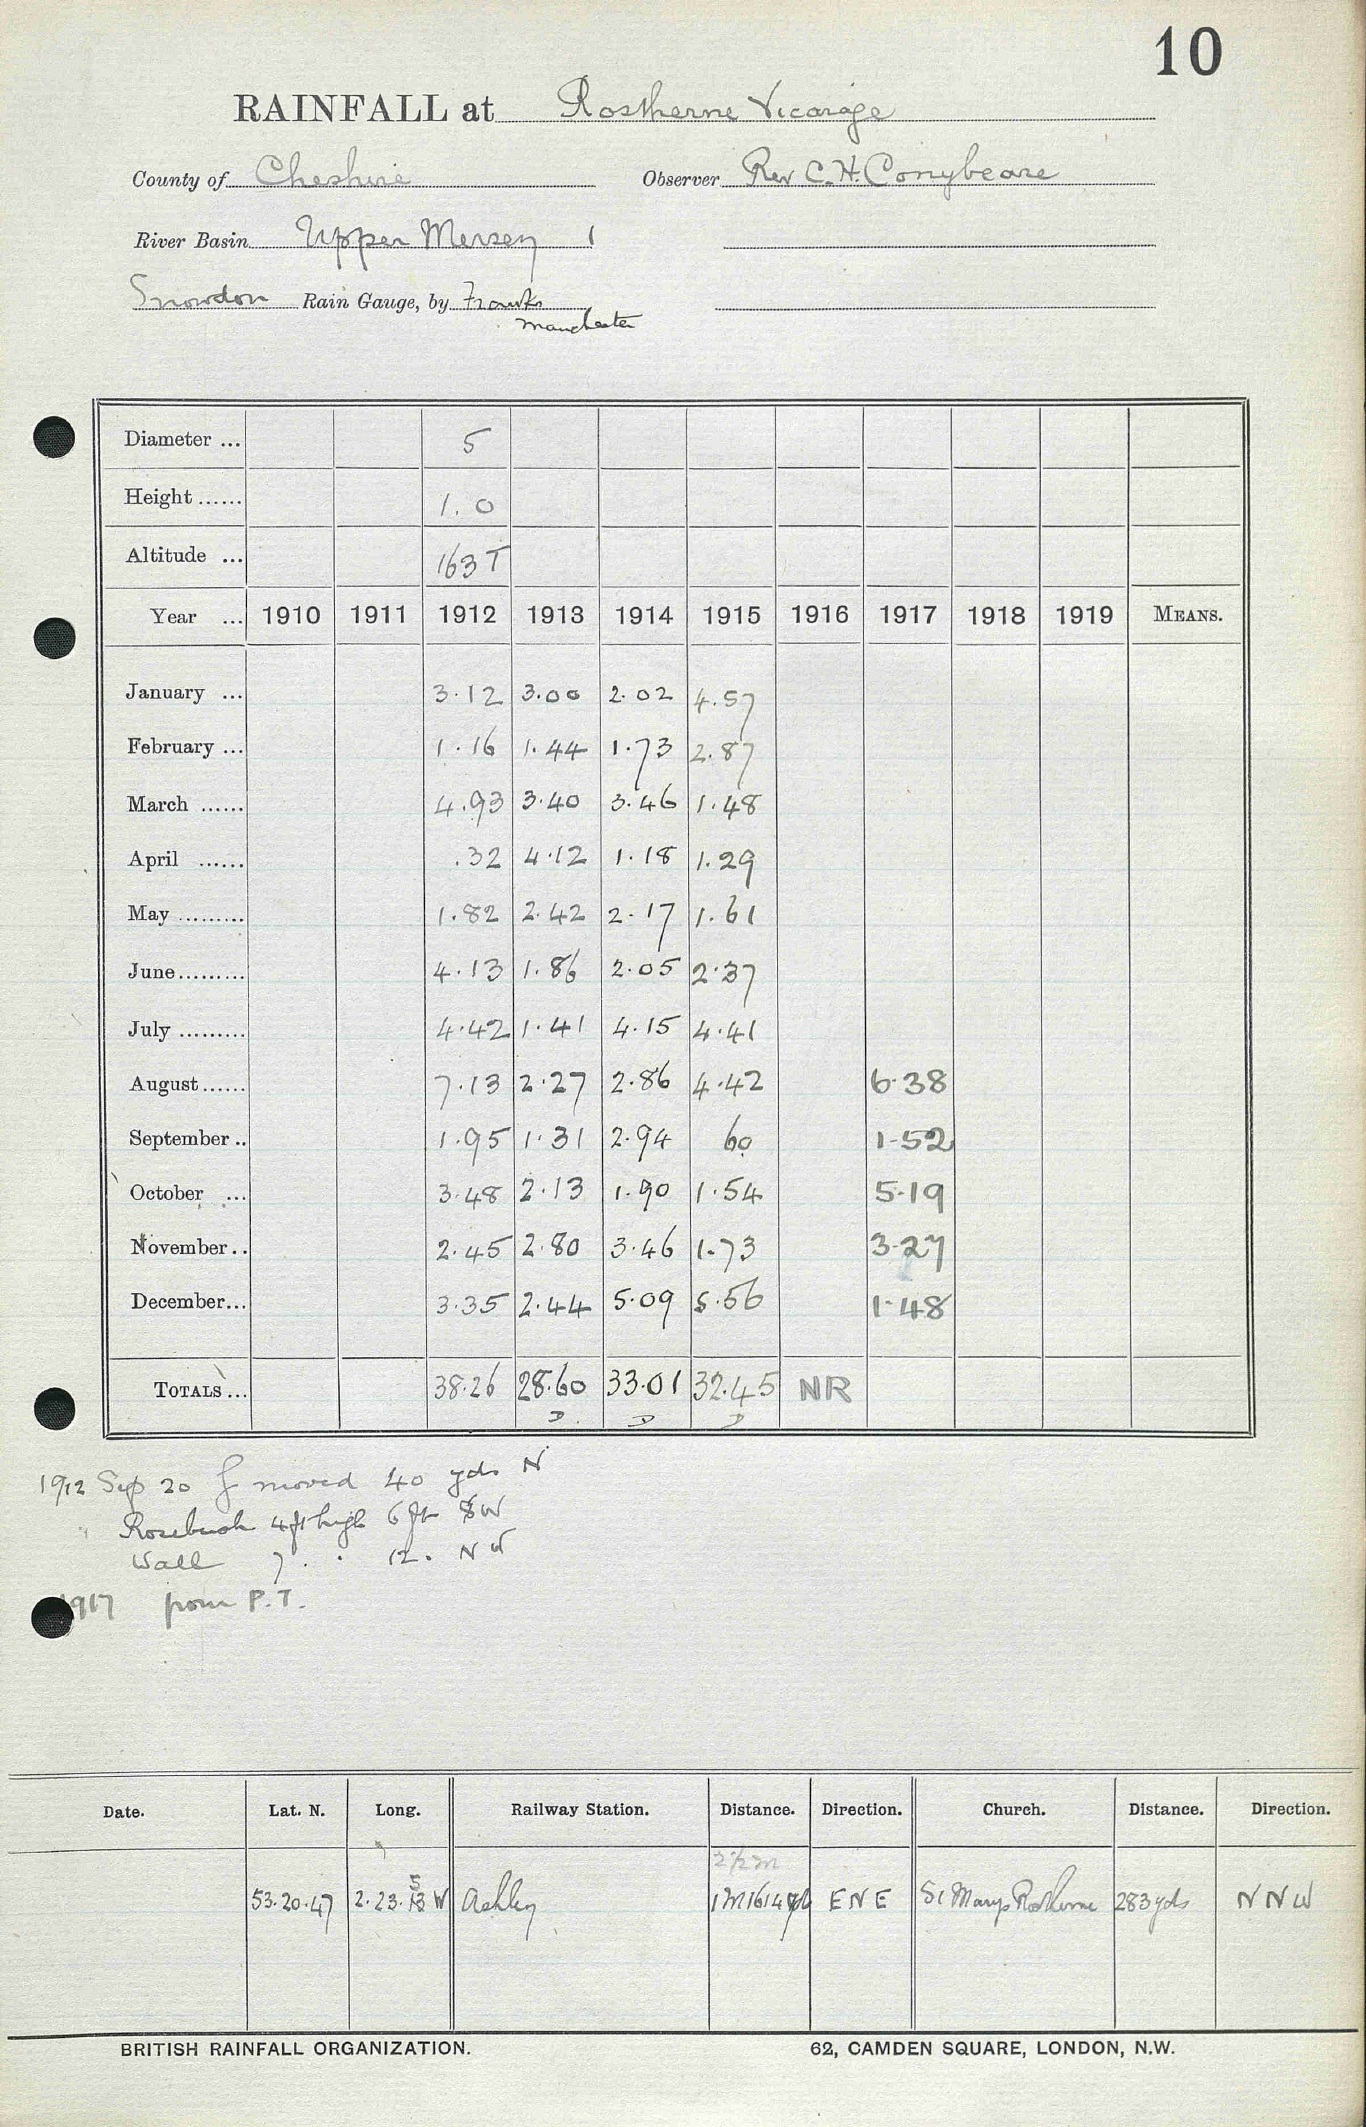 10
RAINFALL at Rostherne Vicarage
County of Cheshire Observer Rev C. H. Conybeare
River Basin Upper Mersey 1
Snowdon Rain Gauge, by Franks
Manchester
Diameter ... 5
Height ...... 1.0
Altitude ... 163 T
Year ... 1910 1911 1912 1913 1914 1915 1916 1917 1918 1919 MEANS.
January ... 3.12 3.00 2.02 4.57
February ... 1.16 1.44 1.73 2.87
March ...... 4.93 3.40 3.46 1.48
April ...... .32 4.12 1.18 1.29
May ......... 1.82 2.42 2.17 1.61
June ......... 4.13 1.86 2.05 2.37
July ......... 4.42 1.41 4.15 4.41
August ...... 7.13 2.27 2.86 4.42 6.38
September .. 1.95 1.31 2.94 60 1.52
October ... 3.48 2.13 1.90 1.54 5.19
November .. 2.45 2.80 3.46 1.73 3.27
December ... 3.35 2.44 5.09 5.56 1.48
TOTALS ... 38.26 28.60 33.01 32.45 NR
D. D D
1912 Sep 20 G moved 40 yds N
" Rosebush 4ft high 6ft SW
Wall 7 . . 12 . NW
1917 from P.T.
Date. Lat. N. Long. Railway Station. Distance. Direction. Church. Distance. Direction.
2½m
53.20.47 2.23. 5 W Ashley 1M 1614 yds E N E St Marys Rostherne 283 yds N N W
BRITISH RAINFALL ORGANIZATION. 62, CAMDEN SQUARE, LONDON, N.W.